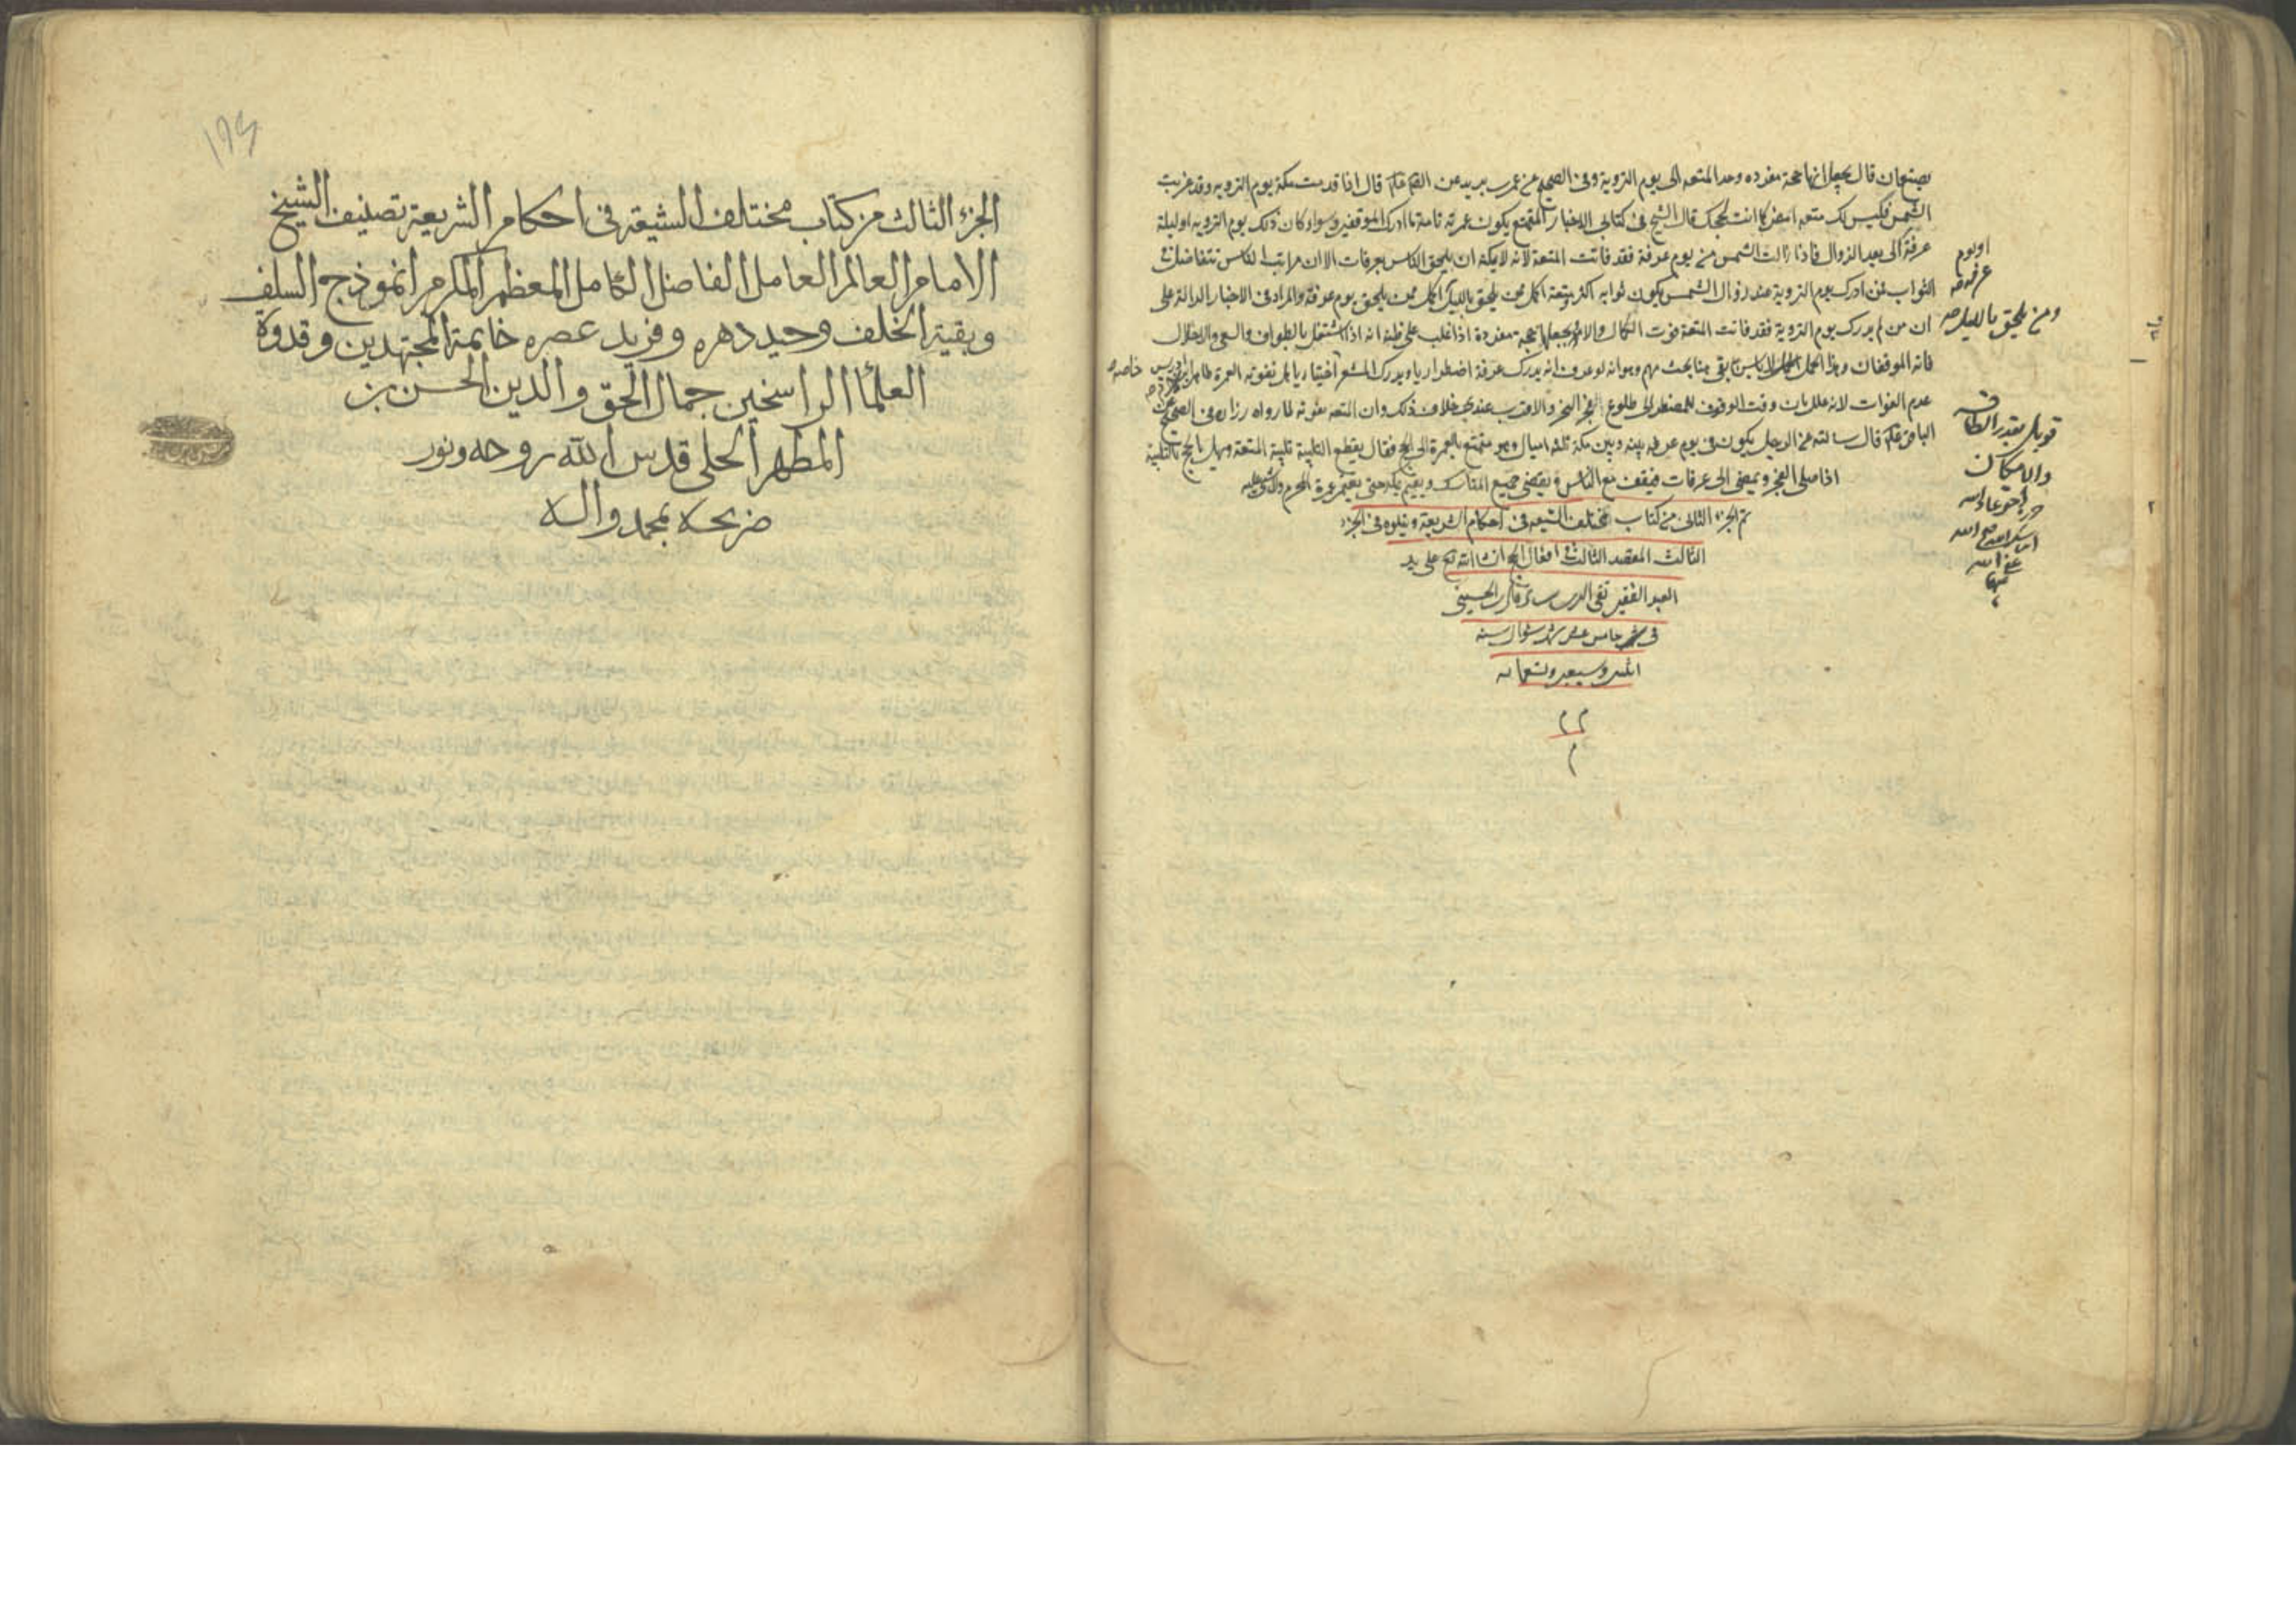 يصنعان قال يجعلانها حجة مفردة وحد المتعة الى يوم التروية وفى الصحيح عن عمر بن يزيد عن الصم عليه قال اذا قدمت مكة يوم التروية وقد غربت
الشمس فليس لك متعة امض كما انت بحجك قال الشيخ فى كتابى الاخبار المتمتع يكون عمرته تامة ما ادرك الموقفين وسواء كان ذلك يوم التروية او ليلة
عرفة الى بعد الزوال فاذا زالت الشمس من يوم عرفة فقد فاتت المتعة لانه لا يمكنه ان يلحق الناس بعرفات الا ان مراتب الناس تتفاضل فى
الثواب فمن ادرك يوم التروية عند زوال الشمس يكون ثوابه اكثر ومتعته اكمل ممن يلحق بالليل اكمل ممن يلحق يوم عرفة والمراد فى الاخبار الدالة على
ان من لم يدرك يوم التروية فقد فاتت المتعة فوت الكمال والامر بجعلها حجة مفردة اذا غلب على ظنه انه اذا اشتغل بالطواف والسعى والاحلال
فاته الموقفان وهذا بقى هنا بحث مهم وهو انه لو عرف انه يدرك عرفة اضطراريا ويدرك المشعر اختياريا هل تفوته العمرة ظاهر
عدم الفوات لانه علل بان وقت الوقوف للمضطر الى طلوع الفجر والاقرب عندى خلاف ذلك وان المتعة تفوته لما رواه زرارة فى الصحيح عن
الباقر عليه قال سالته عن الرجل يكون فى يوم عرفه بينه وبين مكة ثلثة اميال وهو متمتع بالعمرة الى الحج فقال يقطع التلبية تلبية المتعة ويهل بالحج بالتلبية
اذا صلى الفجر ويمضى الى عرفات فيقف مع الناس ويقضى جميع المناسك ويقيم بمكة حتى يعتمر عمرة المحرم ولا شىء عليه
تم الجزء الثانى من كتاب مختلف الشيعة فى احكام الشريعة ويتلوه فى الجزء
الثالث المقصد الثالث فى افعال الحج ان شا الله تع على يد
العبد الفقير تقى الدين الحسينى
فى خامس عشر شهر شوال سنه
اثنين وسبعين وتسعمائه
م م
م
او يوم
عرفه صح
ومن يلحق بالليل صح
خاصه
قوبل بقدر الطاقه
والامكان
الجزء الثالث من كتاب مختلف الشيعة فى احكام الشريعة تصنيف الشيخ
الامام العالم العامل الفاضل الكامل المعظم المكرم انموذج السلف
وبقية الخلف وحيد دهره وفريد عصره خاتمة المجتهدين وقدوة
العلمآ الراسخين جمال الحق والدين الحسن بن
المطهر الحلى قدس الله روحه ونور
ضريحه بمحمد واله